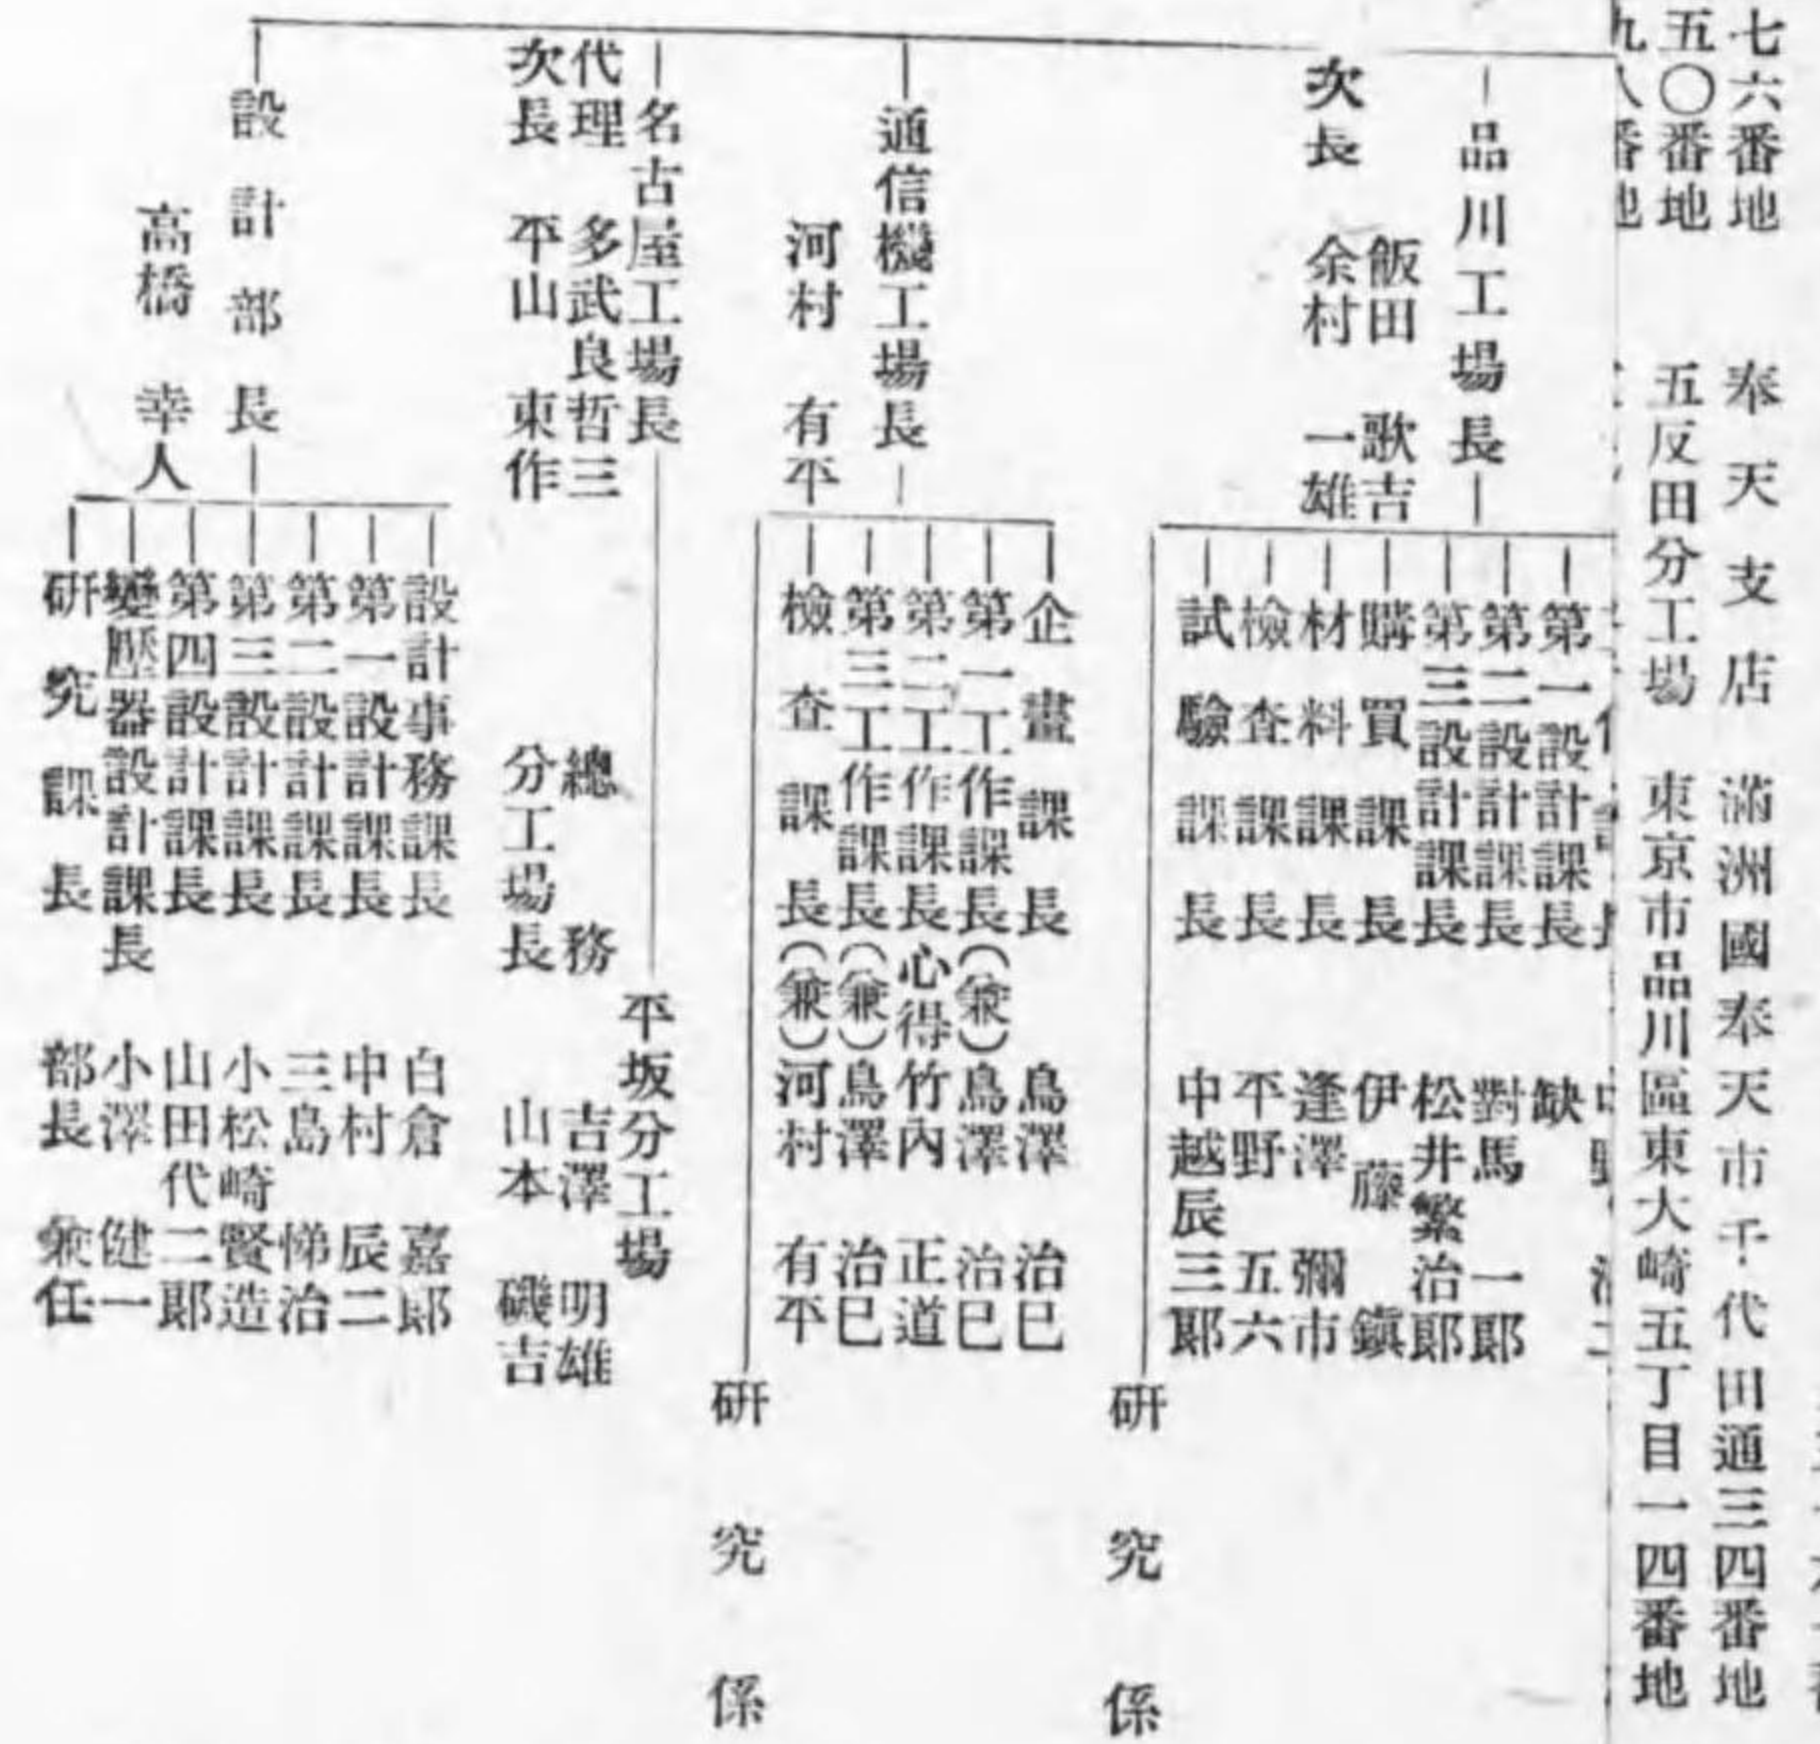 七六番地
五〇番地
番地
奉天支店 滿洲國奉天市千代田通三四番地
五反田分工場 東京市品川區東大崎五丁目一四番地
品川工場長
飯田歌吉
次長 余村一雄
第一設計課長 缺
第二設計課長 對馬一郞
第三設計課長 松井繁治郞
購買課長 伊藤鎭
材料課長 逢澤彌市
檢查課長 平野五六
試驗課長 中越辰三郞
研究係
通信機工場長
河村有平
企畫課長 鳥澤治巳
第一工作課長(兼)鳥澤治巳
第二工作課長心得竹內正道
第三工作課長(兼)鳥澤治巳
檢查課長(兼)河村有平
研究係
名古屋工場長
代理 多武良哲三
次長 平山東作
平坂分工場
總務 吉澤明雄
分工場長 山本磯吉
設計部長
高橋幸人
設計事務課長 白倉嘉郞
第一設計課長 中村辰二
第二設計課長 三島悌治
第三設計課長 小松崎賢造
第四設計課長 山田代二郞
變壓器設計課長 小澤健一
研究課長 部長兼任